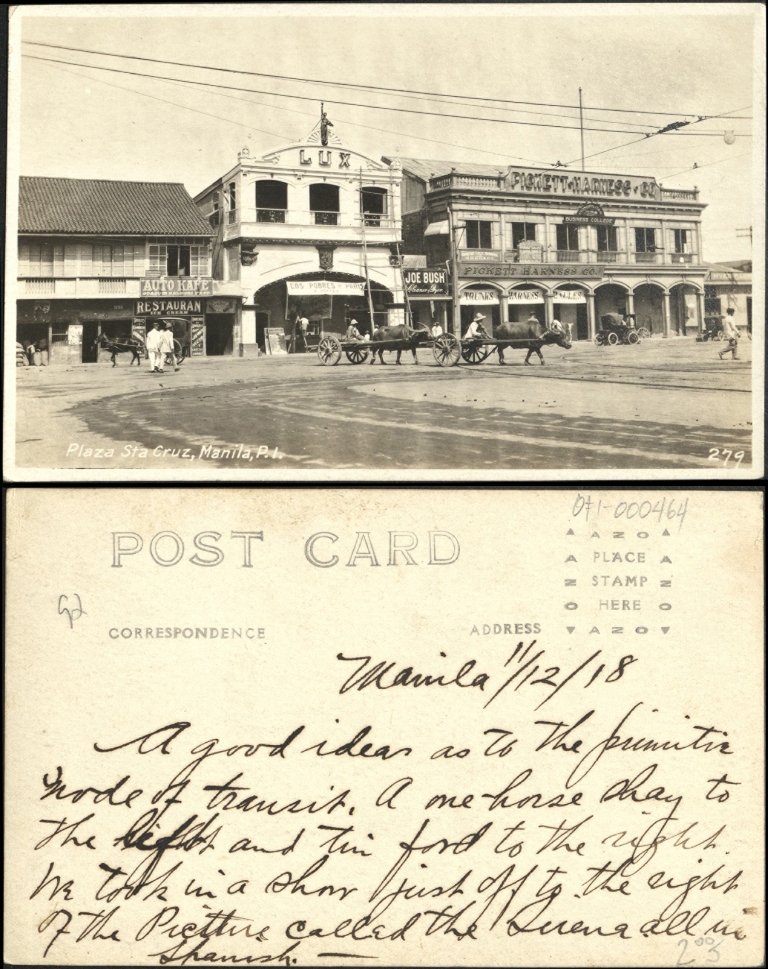 LUX
PICKETT HARNESS CO
BUSINESS COLLEGE
PICKETT HARNESS CO.
AUTO KAFE
RESTAURAN
ICE CREAM
LOS POBRES DE PARIS
JOE BUSH
TRUNKS HARNESS
Plaza Sta Cruz, Manila, P.I.
279
071-000464
POST CARD
AZO
PLACE
STAMP
HERE
AZO
CORRESPONDENCE
ADDRESS
Manila 11/12/18
A good idear as to the primitive
mode of transit. A one-horse shay to
the left and tin ford to the right.
We took in a show just off to the right
of the Picture called the Sirena all in
Spanish. —
2 00/3